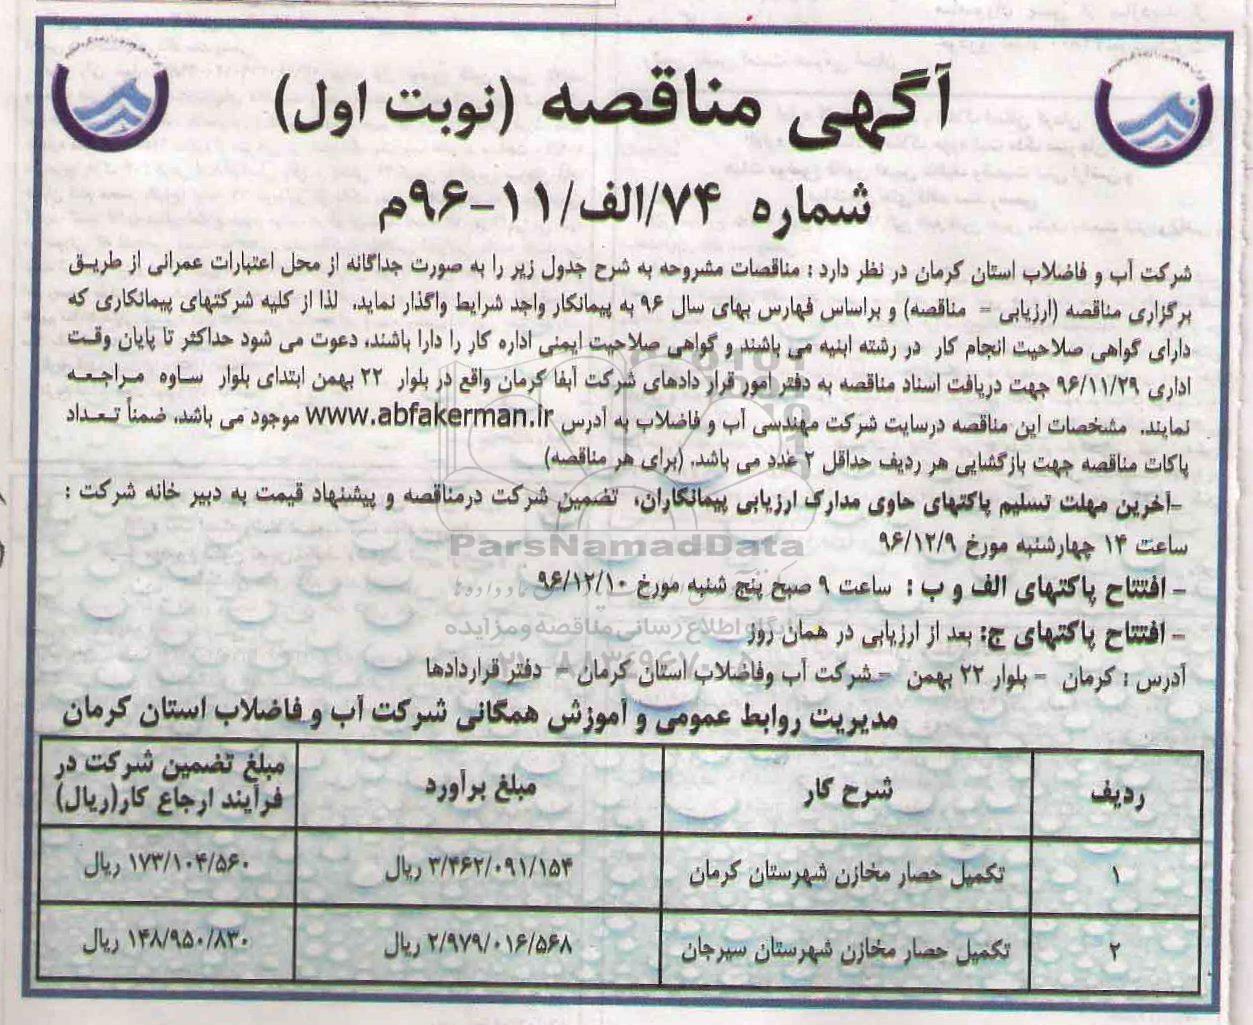 آگهی مناقصه (نوبت اول)
شماره ۷۴/الف/۱۱-۹۶م
شرکت آب و فاضلاب استان کرمان در نظر دارد : مناقصات مشروحه به شرح جدول زیر را به صورت جداگانه از محل اعتبارات عمرانی از طریق
برگزاری مناقصه (ارزیابی – مناقصه) و براساس فهارس بهای سال ۹۶ به پیمانکار واجد شرایط واگذار نماید. لذا از کلیه شرکتهای پیمانکاری که
دارای گواهی صلاحیت انجام کار در رشته ابنیه می باشند و گواهی صلاحیت ایمنی اداره کار را دارا باشند، دعوت می شود حداکثر تا پایان وقت
اداری ۹۶/۱۱/۲۹ جهت دریافت اسناد مناقصه به دفتر امور قرار دادهای شرکت آبفا کرمان واقع در بلوار ۲۲ بهمن ابتدای بلوار ساوه مراجعه
نمایند. مشخصات این مناقصه درسایت شرکت مهندسی آب و فاضلاب به آدرس www.abfakerman.ir موجود می باشد. ضمناً تعداد
پاکات مناقصه جهت بازگشایی هر ردیف حداقل ۲ عدد می باشد. (برای هر مناقصه)
-آخرین مهلت تسلیم پاکتهای حاوی مدارک ارزیابی پیمانکاران، تضمین شرکت درمناقصه و پیشنهاد قیمت به دبیر خانه شرکت :
ساعت ۱۴ چهارشنبه مورخ ۹۶/۱۲/۹
- افتتاح پاکتهای الف و ب : ساعت ۹ صبح پنج شنبه مورخ ۹۶/۱۲/۱۰
- افتتاح پاکتهای ج: بعد از ارزیابی در همان روز
آدرس : کرمان – بلوار ۲۲ بهمن – شرکت آب وفاضلاب استان کرمان – دفتر قراردادها
مدیریت روابط عمومی و آموزش همگانی شرکت آب و فاضلاب استان کرمان
ردیف شرح کار مبلغ برآورد مبلغ تضمین شرکت در فرآیند ارجاع کار(ریال)
۱ تکمیل حصار مخازن شهرستان کرمان ۳/۴۶۲/۰۹۱/۱۵۴ ریال ۱۷۳/۱۰۴/۵۶۰ ریال
۲ تکمیل حصار مخازن شهرستان سیرجان ۲/۹۷۹/۰۱۶/۵۶۸ ریال ۱۴۸/۹۵۰/۸۳۰ ریال
ParsNamadData
پایگاه اطلاع رسانی مناقصه ومزایده